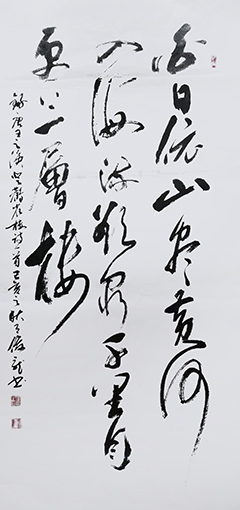 白日依山尽黄河
入海流欲穷千里目
更上一层楼
录唐王之涣登鹳雀楼诗一首己亥之秋